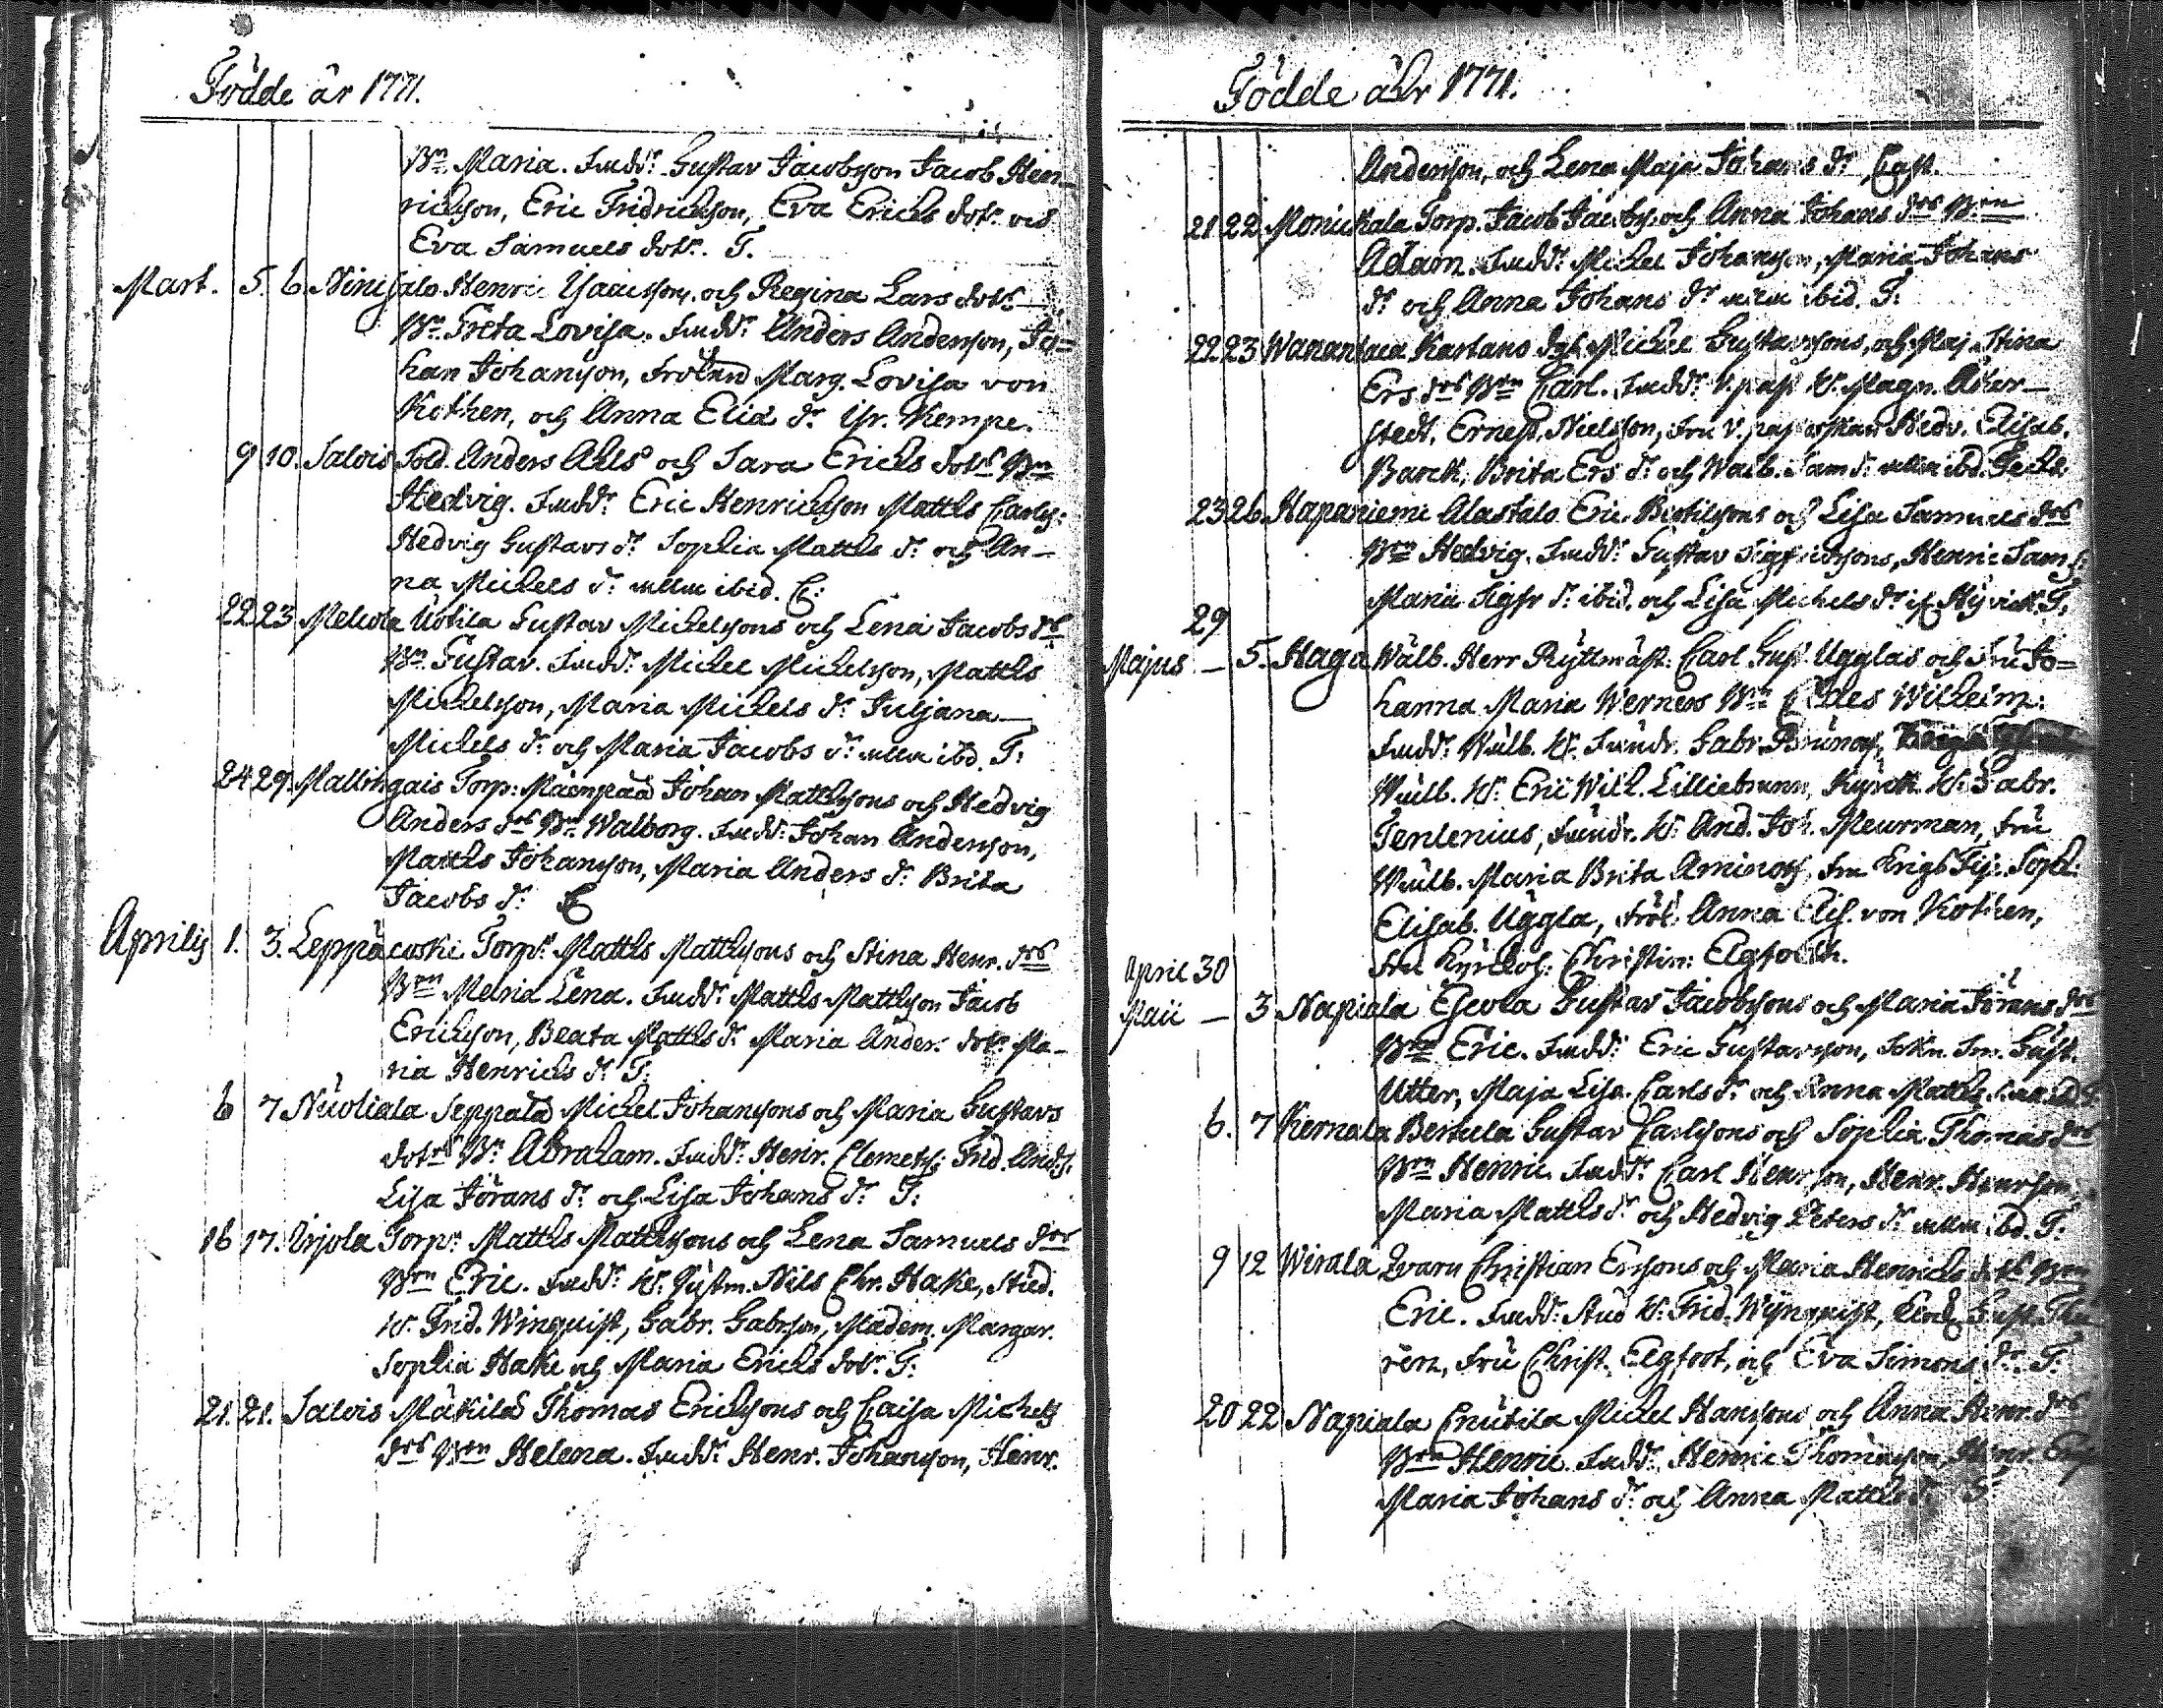 Födde år 1771.
Bn Maria. Fudd: Gustav Jacobsson Jacob Hen-
richsson, Eric Fridrichsson, Eva Erichs dotr. och
Eva Samuels dotr. T.
Mart. 5. 6. Henric Isaacssons och Regina Lars dotrs
Bn Greta Lovisa. Fudd: Anders Andersson, Jo=
han Johansson, Fröken Marg. Lovisa von
Kothen, och Anna Elia dr Kempe.
9 10. Salois Sold. Anders Ahls och Sara Erichs dotrs Bn
Hedvig. Fudd: Eric Henrichsson Matths Carlss:
Hedvig Gustavs dr Sophia Matths dr och An-
na Michels dr ibid. C:
22 23 Uotila Gustav Michelssons och Lena Jacobs drs
Bn Gustav. Fudd: Michel Michelsson, Matths
Michelsson, Maria Michels dr Juljana
Michels dr och Maria Jacobs dr ibd. T:
24 29. Mallingais Torp: Mäenpää Johan Matthssons och Hedvig
Anders drs Bn Walborg. Fudd: Johan Andersson,
Matths Johansson, Maria Anders dr Brita
Jacobs dr C
Aprilis 1. 3. Leppäcoski Torpr Matths Matthssons och Stina Henr. drs
Brn Maria Lena. Fudd: Matths Matthsson Jacob
Ericksson, Beata Matths dr Maria Anders dotr Ma-
ria Henrichs dr T.
6 7 Nuoliala Seppälä Michel Johanssons och Maria Gustavs
dotrs Bn Abraham. Fudd: Henr. Clemetss: Frid. Ands.
Lisa Jörans dr och Lisa Johans dr T:
16 17. Urjola Torpr Matths Matthssons och Lena Samuels drs
Brn Eric. Fudd: H. Nils Chr. Hake, Stud.
H. Frid. Winquist, Gabr. Gabrsson, Madem. Margar.
Sophia Hake och Maria Erichs dotr T:
21. 21. Salois Mäkilä Thomas Erichssons och Caisa Michels
drs Brn Helena. Fudd: Henr. Johansson, Henr.
Födde åhr 1771.
Andersson, och Lena Maja Johans dr Cast.
21 22 Monickala Torp. Jacob Jacobss. och Anna Johans drs Brn
Adam. Fudd: Michel Johansson, Maria Johans
dr och Anna Johans dr ibid. T:
22 23 Wanantaca Kartano Michel Gustavssons, och Maj Stina
Ers drs Brn Carl. Fudd: V. past H. Magn. Aker-
stedt, Ernest. Nielsson, Fru V. pastorskan Hedv. Elisab.
Barck, Brita Ers dr och Walb. Sam dr ibd.
23 26. Hapaniemi Alastalo Eric Bertilssons och Lisa Samuels drs
Brn Hedvig. Fudd: Gustav Sigfridssons, Henric Sam s:
Maria Sigfr dr ibid. och Lisa Michels dr T.
29
Majus - 5. Haga Wälb. Herr Ryttmäst: Carl Gust. Ugglas och Fru Jo=
hanna Maria Werners Brn Claes Wilhelm:
Fudd: Wälb. H. Gabr.
Wälb. H. Eric Wilh. Lilliebrunn, H. Gabr.
Tenlenius, H. And. Joh. Meurman, Fru
Wälb. Maria Brita Aminoff, Fru Soph:
Elisab. Uggla, Fröl. Anna Elis. von Kothen,
Fru Christin: Elgfooth.
April 30
Maii - 3 Napiala Gustav Jacobssons och Maria Jörans drs
Brn Eric. Fudd: Eric Gustavsson, Gust.
Utter, Maja Lisa Carls dr och Anna Matths
6. 7 Kernala Bertula Gustav Carlssons och Sophia Thomas drs
Brn Henric. Fudd: Carl Henrsson, Henr. Henrsson
Maria Matths dr och Hedvig Peters dr ibd. T.
9 12 Wirala Qvarn Christian Erssons och Maria Henrichs dotrs Brn
Eric. Fudd: Stud H. Frid. Wynquist, Gust.
Fru Christ. Elgfoot, och Eva Simons dr T:
20 22 Napiala Cnutila Michel Hanssons och Anna Henr. drs
Brn Henric. Fudd: Henric Thomasson, Henr.
Maria Johans dr och Anna Matths